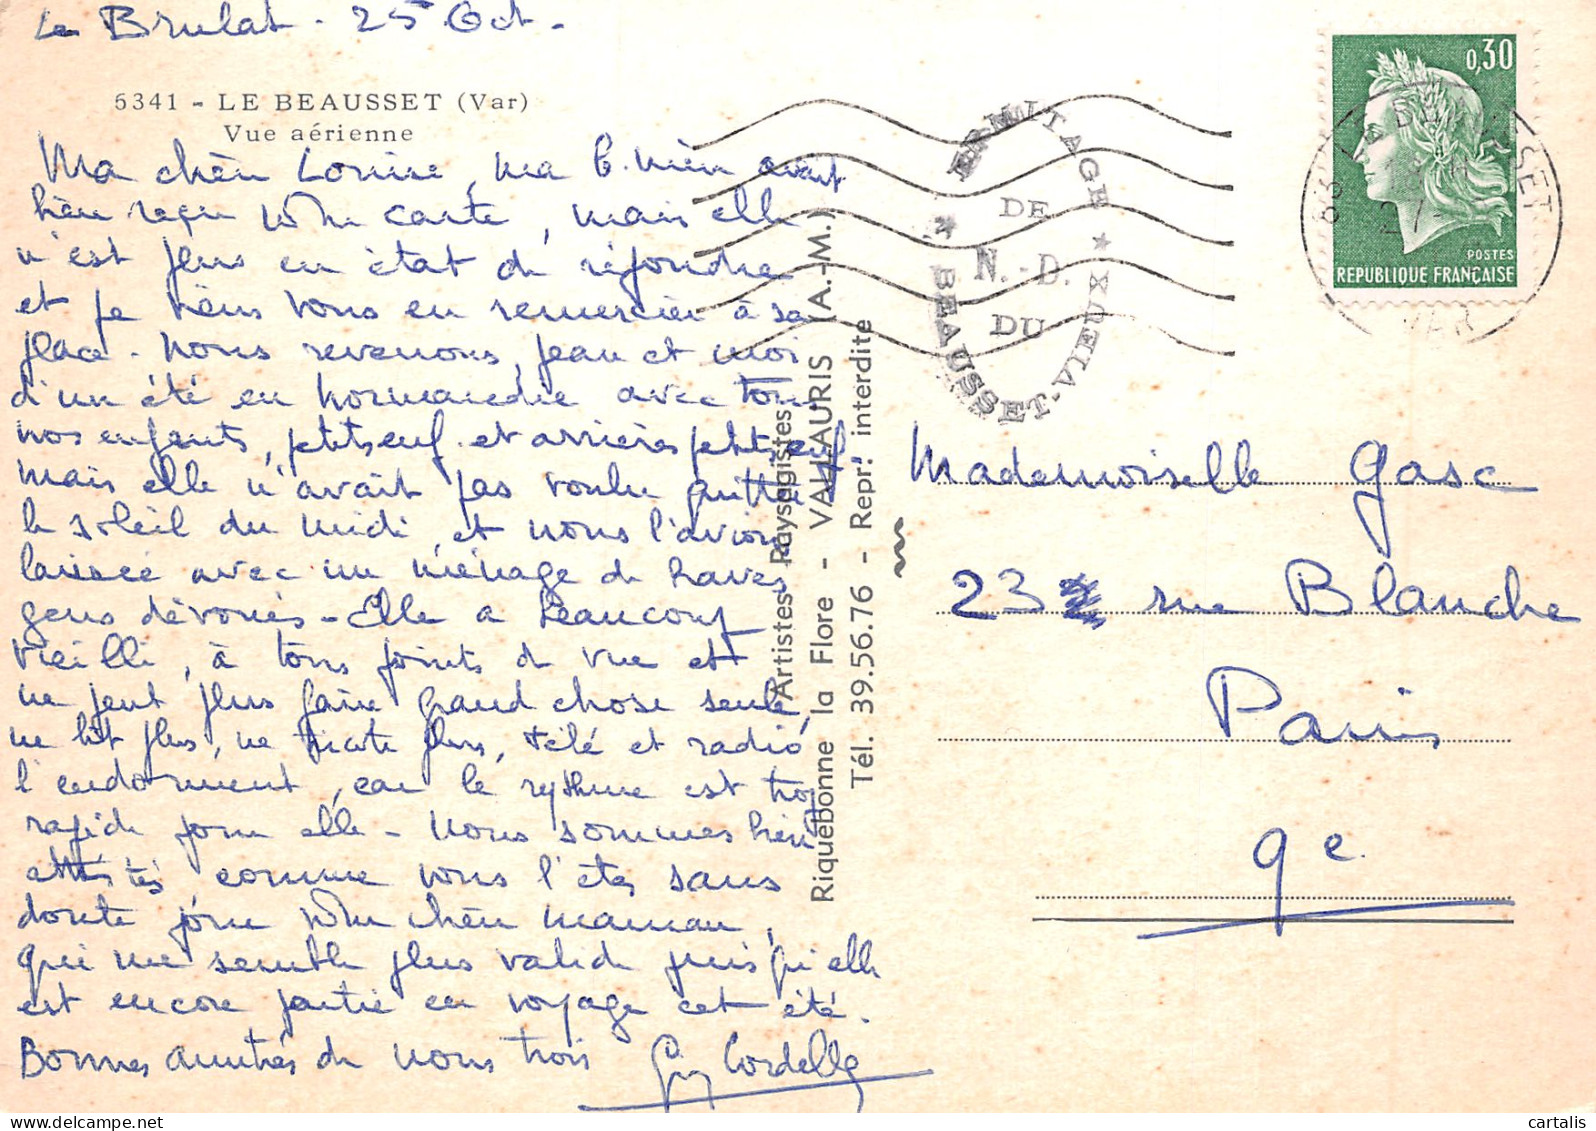 Le Brulat - 25 Oct -
5341 - LE BEAUSSET (Var)
Vue aérienne
Ma chère Louise, ma b. mère avait
bien reçu votre carte, mais elle
n'est plus en état de répondre
et je viens vous en remercier à sa
place. Nous revenons, Jean et moi
d'un été en Normandie avec tous
nos enfants, petits enf. et arrières petits enf.
mais elle n'avait pas voulu quitter
le soleil du midi, et nous l'avions
laissée avec un ménage de braves
gens dévoués - Elle a beaucoup
vieilli, à tous points de vue et
ne peut plus faire grand chose seule,
ne lit plus, ne tricote plus, télé et radio
l'endorment, car le rythme est trop
rapide pour elle - Nous sommes bien
attristés comme vous l'êtes sans
doute pour votre chère maman,
qui me semble plus valide puisqu'elle
est encore partie en voyage cet été.
Bonnes amitiés de nous trois
Guy Cordelle
Artistes Paysagistes
Riquebonne la Flore - VALLAURIS (A.-M.)
Tél. 39.56.76 - Repr. interdite
ERMITAGE
DE
N.-D.
DU
BEAUSSET-VIEUX
0,30
POSTES
REPUBLIQUE FRANÇAISE
83
BEAUSSET
VAR
Mademoiselle Gasc
23 rue Blanche
Paris
9e
cartalis
www.delcampe.net